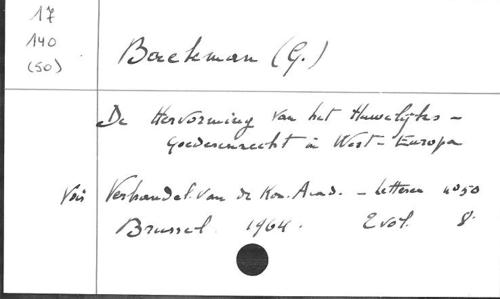 17
140
(50)
Baekman (G.)
De Hervorming van het Huwelijks -
Goederenrecht in West - Europa
Voir Verhandel. van de Kon. Acad. - Letteren n° 50
Brussel. 1964. 2 vol. 8°